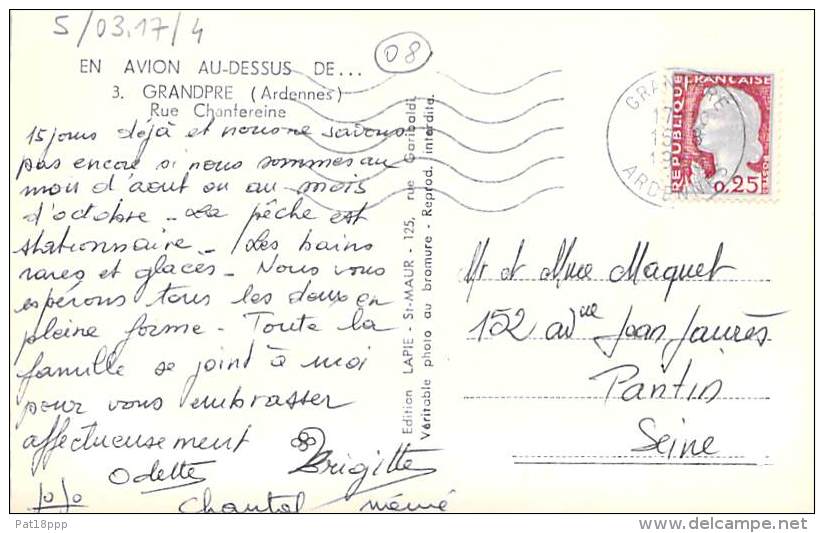 5/03.17/4
08
EN AVION AU-DESSUS DE...
3. GRANDPRE (Ardennes)
Rue Chantereine
15 jours déjà et nous ne savons
pas encore si nous sommes au
mois d'aout ou au mois
d'octobre - La pêche est
stationnaire - Les bains
rares et glacés - Nous vous
espérons tous les deux en
pleine forme - Toute la
famille se joint à moi
pour vous embrasser
affectueusement
Odette Brigitte
Jojo Chantal mémé
Edition LAPIE - St-MAUR - 125, rue Garibaldi.
Véritable photo au bromure - Reprod. interdite.
GRANDPRE
17
ARDENNES
REPUBLIQUE FRANÇAISE
0,25
Mr et Mme Maquet
152 avenue Jean Jaurès
Pantin
Seine
Pat18ppp
delcampe.net